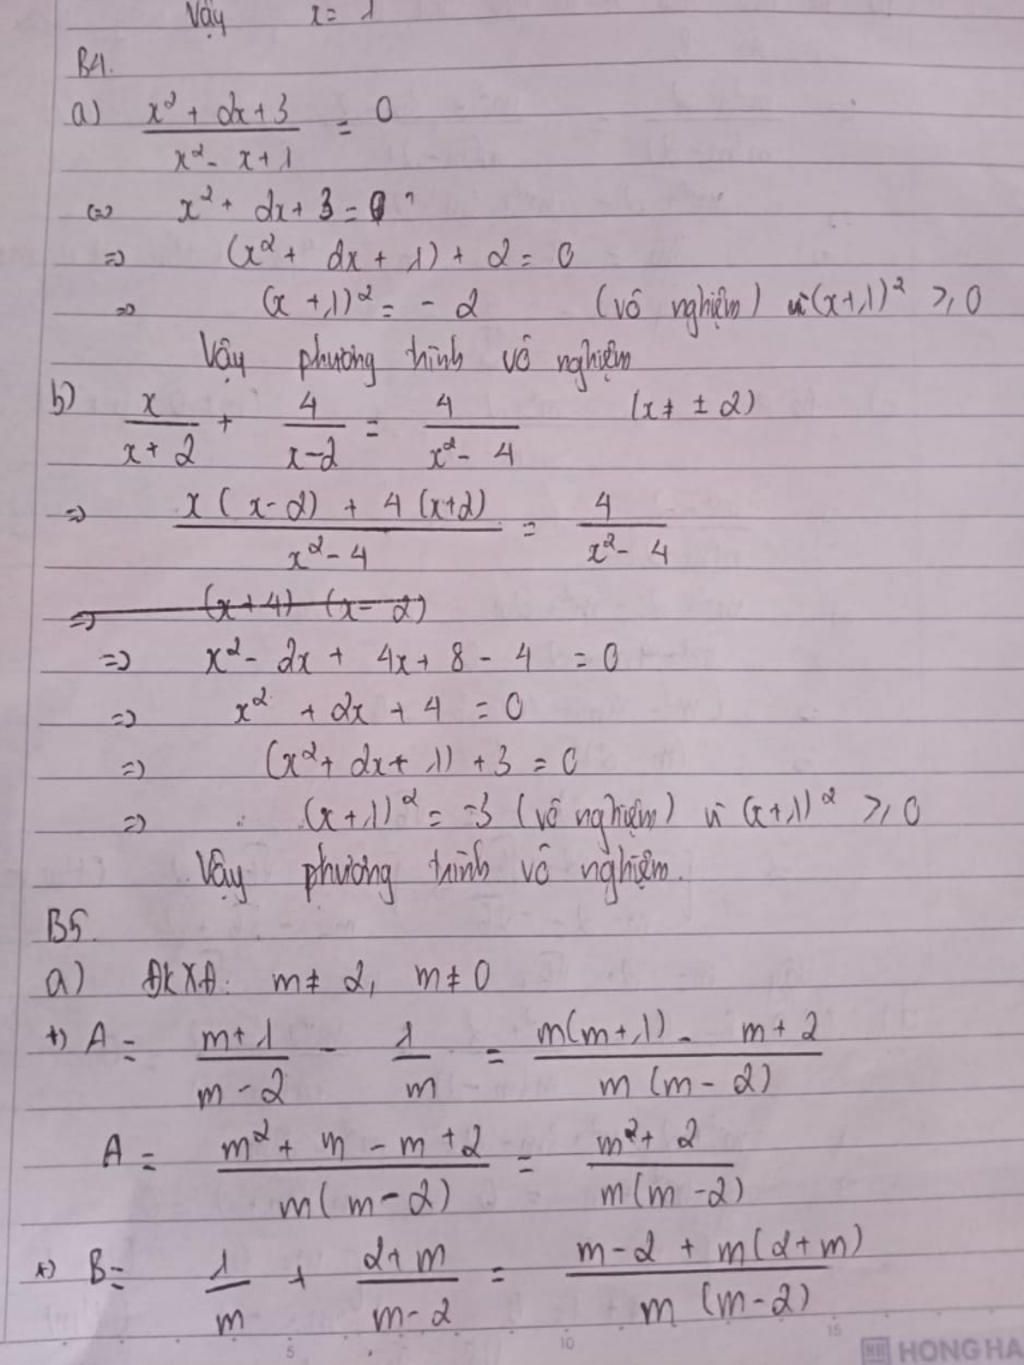 Vậy x = 1
B4.
a) (x² + 2x + 3)/(x² - x + 1) = 0
⇔ x² + 2x + 3 = 0
=> (x² + 2x + 1) + 2 = 0
=> (x + 1)² = - 2 (vô nghiệm) vì (x+1)² ≥ 0
Vậy phương trình vô nghiệm
b) x/(x + 2) + 4/(x - 2) = 4/(x² - 4) (x ≠ ± 2)
=> (x(x - 2) + 4(x+2))/(x² - 4) = 4/(x² - 4)
=> (x + 4) (x - 2)
=> x² - 2x + 4x + 8 - 4 = 0
=> x² + 2x + 4 = 0
=> (x² + 2x + 1) + 3 = 0
=> (x + 1)² = -3 (vô nghiệm) vì (x+1)² ≥ 0
Vậy phương trình vô nghiệm.
B5.
a) ĐKXĐ: m ≠ 2, m ≠ 0
+) A = (m + 1)/(m - 2) - 1/m = (m(m+1) - m + 2)/(m(m - 2))
A = (m² + m - m + 2)/(m(m - 2)) = (m² + 2)/(m(m - 2))
+) B = 1/m + (2 + m)/(m - 2) = (m - 2 + m(2+m))/(m(m - 2))
5 10 15
HH HONG HA